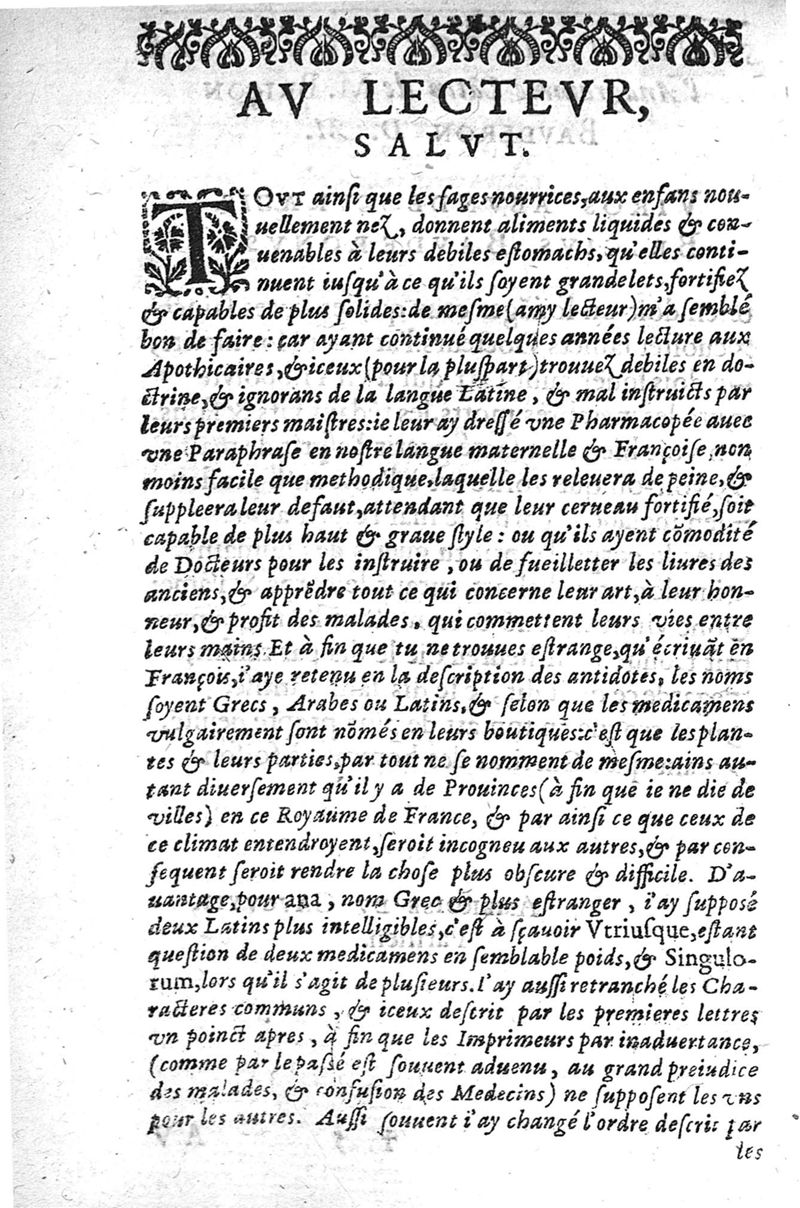 AV LECTEVR,
SALVT.
TOVT ainſi que les ſages nourrices, aux enfans nou-
uellement nez, donnent aliments liquides & con-
uenables à leurs debiles eſtomachs, qu'elles conti-
nuent iuſqu'à ce qu'ils ſoyent grandelets, fortifiez
& capables de plus ſolides: de meſme (amy lecteur) m'a ſemblé
bon de faire: car ayant continué quelques années lecture aux
Apothicaires, & iceux (pour la pluſpart) trouuez debiles en do-
ctrine, & ignorans de la langue Latine, & mal inſtruicts par
leurs premiers maiſtres: ie leur ay dreſſé vne Pharmacopée auec
vne Paraphraſe en noſtre langue maternelle & Françoiſe, non
moins facile que methodique, laquelle les releuera de peine, &
ſuppleera leur defaut, attendant que leur cerueau fortifié, ſoit
capable de plus haut & graue ſtyle: ou qu'ils ayent cõmodité
de Docteurs pour les inſtruire, ou de fueilletter les liures des
anciens, & apprẽdre tout ce qui concerne leur art, à leur hon-
neur, & profit des malades, qui commettent leurs vies entre
leurs mains. Et à fin que tu ne trouues eſtrange, qu'écriuãt en
François, i'aye retenu en la deſcription des antidotes, les noms
ſoyent Grecs, Arabes ou Latins, & ſelon que les medicamens
vulgairement ſont nõmés en leurs boutiques: c'eſt que les plan-
tes & leurs parties, par tout ne ſe nomment de meſme: ains au-
tant diuerſement qu'il y a de Prouinces (à fin que ie ne die de
villes) en ce Royaume de France, & par ainſi ce que ceux de
ce climat entendroyent, ſeroit incogneu aux autres, & par con-
ſequent ſeroit rendre la choſe plus obſcure & difficile. D'a-
uantage, pour ana, nom Grec & plus eſtranger, i'ay ſuppoſé
deux Latins plus intelligibles, c'eſt à ſçauoir Vtriuſque, eſtant
queſtion de deux medicamens en ſemblable poids, & Singulo-
rum, lors qu'il s'agit de pluſieurs. I'ay auſſi retranché les Cha-
racteres communs, & iceux deſcrit par les premieres lettres
vn poinct apres, à fin que les Imprimeurs par inaduertance,
(comme par le paſſé eſt ſouuent aduenu, au grand preiudice
des malades, & confuſion des Medecins) ne ſuppoſent les vns
pour les autres. Auſſi ſouuent i'ay changé l'ordre deſcrit par
les